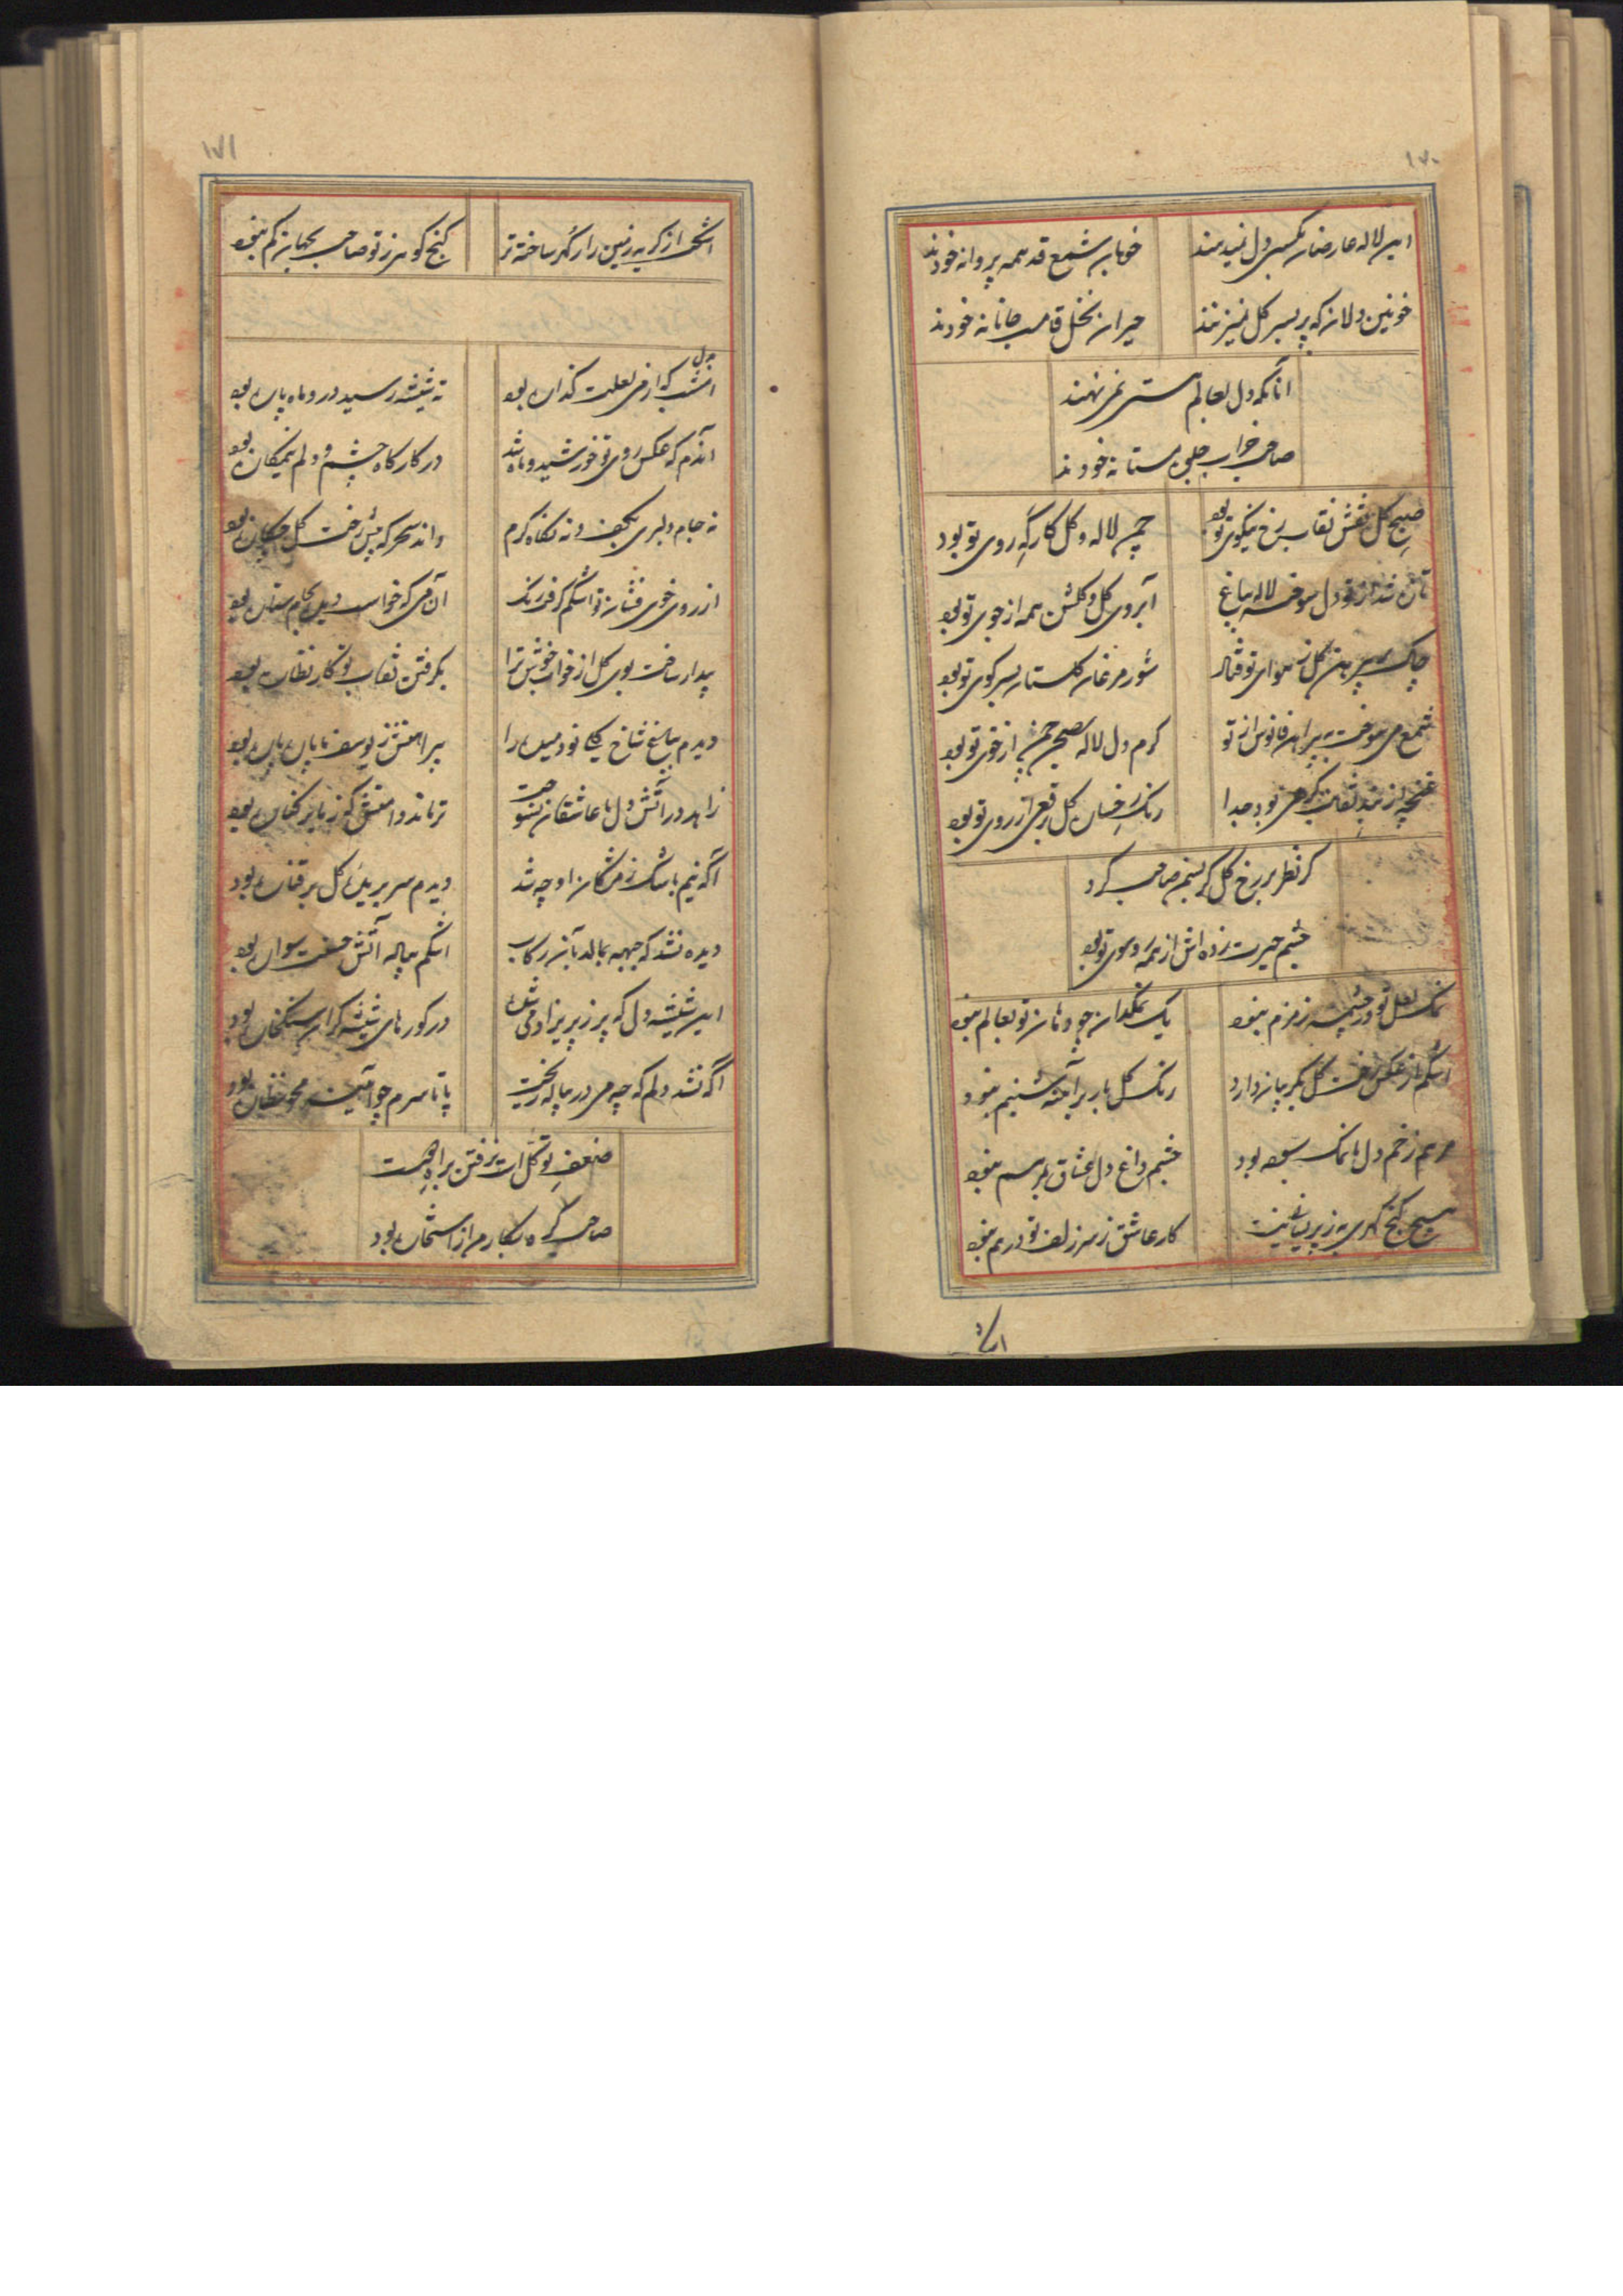 ۱۷۰
این لاله عارضان بکسی دل نمیدهند
خوبان شمع قد همه پروانه خودند
خونین دلان که بر سر گل
حیران نخل قامت جانانه خودند
آنانکه دل بعالم هستی نمی‌نهند
صاحب خراب جلوه مستانه خودند
صبح گل نقش نقاب رخ نیکوی تو بود
چمن لاله و گل کارگه روی تو بود
تازه شد از تو دل سوخته لاله بباغ
آبروی گل و گلشن همه از جوی تو بود
چاک پیرهن گل ز هوای تو فتاد
شور مرغان گلستان بسر کوی تو بود
شمع می سوخت به پیراهن فانوس از تو
گرم دل لاله بصحن چمن از خوی تو بود
غنچه از بند نقابت گرهی بود جدا
رنگ رخسار گل از روی تو بود
گر نظر بر رخ گل کرد صاحب کرد
چشم حیرت زده اش از همه رو سوی تو بود
نمک لعل تو در چشمه زمزم نبود
یک نمکدان چو دهان تو بعالم نبود
اشکم از عکس رخت گل بگریبان دارد
رنگ گل بار بر آینه شبنم نبود
مرهم زخم دل ما نمک سوده بود
چشم داغ دل عشاق بمرهم نبود
هیچ گنج گهری به ز پریشانی نیست
کار عاشق ز سر زلف تو درهم نبود
۱۷۱
اشکت از گریه زمین را رگ گهر ساخته تر
گنج گوهر ز تو صاحب بجهان کم نبود
امشب که از می لعلت گذاره بود
ته شیشه رسید در و ماه پاره بود
آندم که عکس روی تو خورشید و ماه شد
در کارگاه چشم و دلم بود
نه جام دلبری بکف و نه نگاه گرم
آن می که خواست
بیدار ساخت بوی گل از خواب خوش ترا
بگرفتن نقاب تو کار نظاره بود
دیدم بباغ شاخ گل نو رسیده را
پیراهنش ز یوسف ما پاره پاره بود
زاهد در آتش دل ما عاشقان نسوخت
تر ماند دامنش که ز ما بر کناره بود
آگه نیم باشک ز مژگان او چه شد
دیدم سر بریده گل بر قناره بود
دیده نشد که جبهه بمالد بآن رکاب
اشکم پیاله آتش حسنت سواره بود
این شیشه دل که پر ز پریزاد می شدی
در کوره‌های شیشه گران سنگ خاره بود
آگه نشد دلم که چه می در پیاله ریخت
پا تا سرم چو آینه محو نظاره بود
ضعف توکل است نرفتن براه
صاحب گره بکار من از استخاره بود